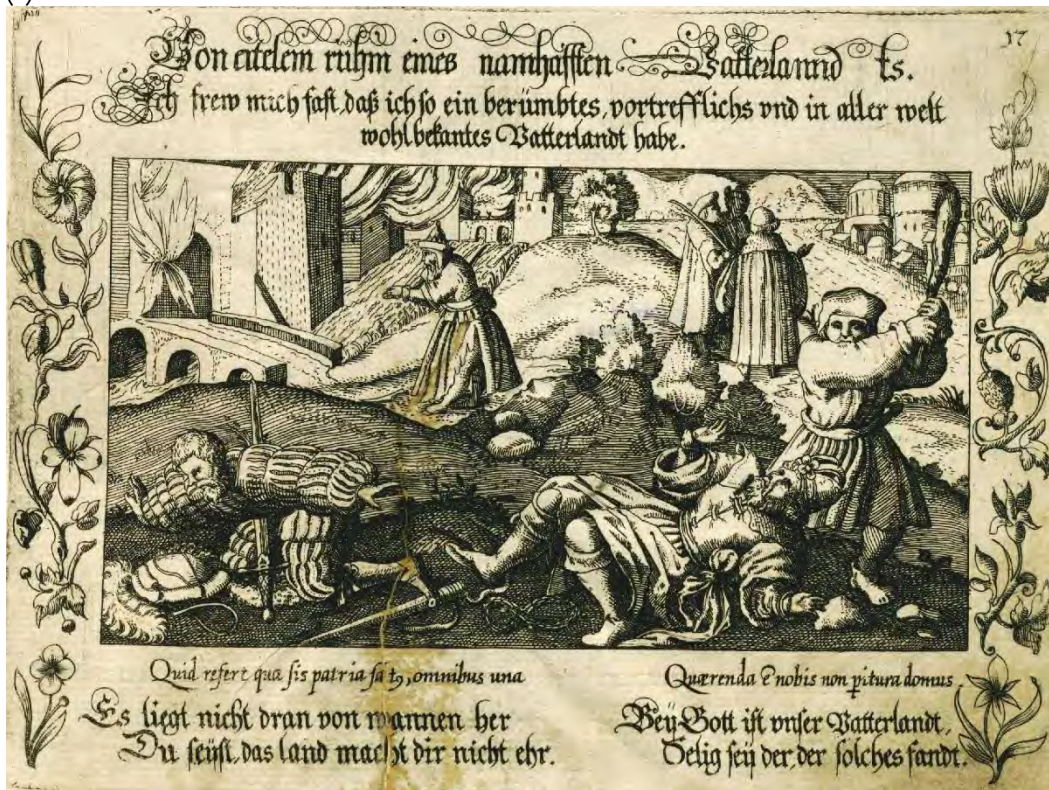 17
Von eitelem rühm eines namhafften Vatterlannd ts.
Ich frew mich fast, daß ich so ein berümbtes, vortrefflichs vnd in aller welt
wohlbekantes Vatterlandt habe.
Quid refert qua sis patria sat9, omnibus una
Quærenda ē nobis non ꝑitura domus.
Es liegt nicht dran von wannen her
Du seÿst, das land macht dir nicht ehr.
Beÿ Gott ist vnser Vatterlandt,
Selig seÿ der, der solches fandt.